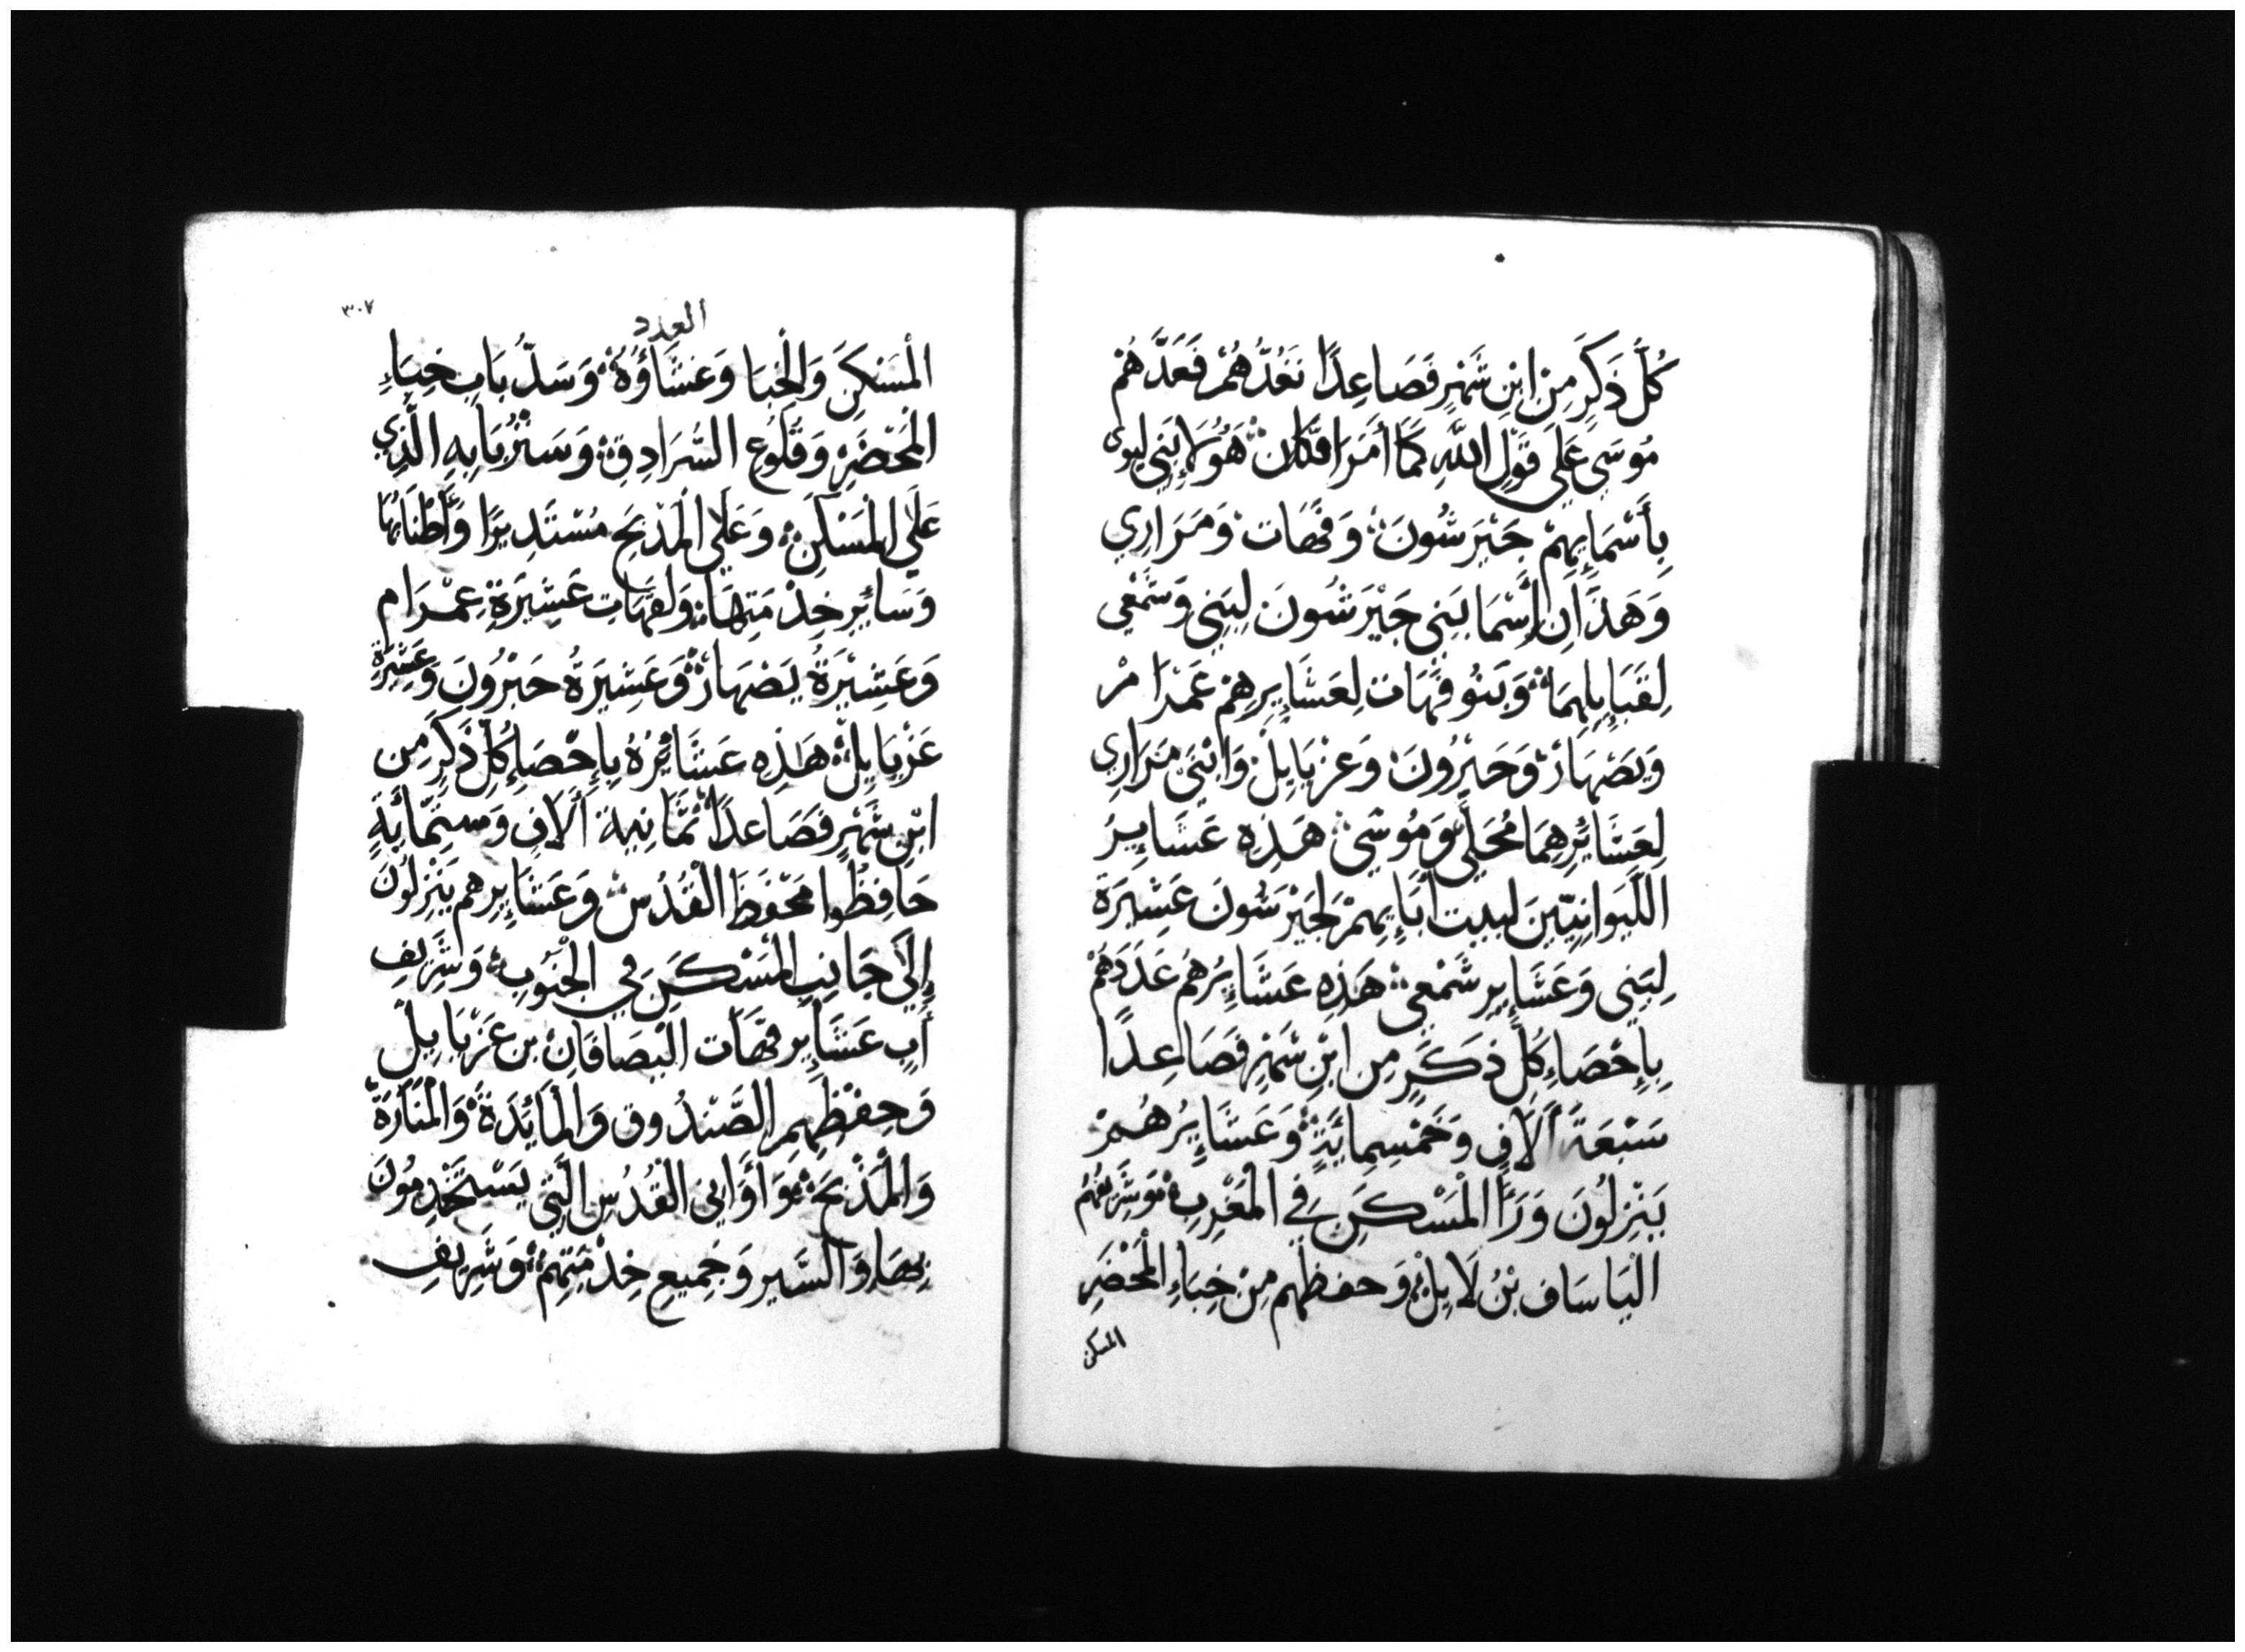 كُلَّ ذَكَرٍ مِنَ ابْنِ شَهْرٍ فَصَاعِدًا نَعُدُّهُمْ فَعَدَّهُمْ
مُوسَى عَلَى قَوْلِ اللهِ كَمَا أَمَرَ فَكَانَ هَؤُلَاءِ بَنِي لِيوَى
بِأَسْمَايِهِمْ جَيْرَشُونَ وَقَهَات وَمَرَارِي
وَهَذَانِ إِسْمَا بَنِي جَيْرَشُونَ لِبَنِي وَشَمْعِي
لِقَبَايِلِهِمَا وَبَنُو قَهَات لِعَشَايِرِهِمْ عَمْرَامْ
وَيَصْهَارْ وَحَبْرُونَ وَعَزْيَايِلْ وَابْنَيْ مَرَارِي
لِعَشَايِرِهِمَا مُحَلِي وَمُوشِي هَذِهِ عَشَايِرُ
اللَّيوَانِيِّينَ لبيت آبَايِهِمْ لِجَيْرَشُونَ عَشِيرَة
لِبَنِي وَعَشَايِر شَمْعِي هَذِهِ عَشَايِرُهُمْ عَدَدَهُمْ
بِإِحْصَاءِ كُلِّ ذَكَرٍ مِن ابْنِ شَهْرٍ فَصَاعِدًا
سَبْعَةَ آلَافٍ وَخَمْسِمِائَةٍ وَعَشَايِرُهُمْ
يَنْزِلُونَ وَرَاَ الْمَسْكَنِ فِي الْمَغْرِبِ وَشَرِيفُهُمُ
الْيَاسَاف بْنُ لَايِلْ وَحفظهم مِنْ خِبَاءِ الْمَحْضَرِ
المسكن
٣٠٧
العدد
الْمَسْكَنَ وَالْخِبَا وَغِشَاؤُهُ وَسَدِّ بَابِ خِبَاءِ
الْمَحْضَرِ وَقُلُوع السُّرَادِقِ وَسَتْرِ بَابِهِ الَّذِي
عَلَى الْمَسْكَنِ وَعَلَى الْمَذْبَحِ مُسْتَدِيرًا وَأَطْنَابُهَا
وَسَايِرِ خِدْمَتِهَا وَلِقَهَات عَشِيرَةِ عِمْرَام
وَعَشِيْرَةُ يَصْهَارْ وَعَشِيرَةُ حَبْرُونَ وَعَشِيرَةِ
عَزْيَايِلْ هَذِهِ عَشَايِرُهُ بِإِحْصَاءِ كُلِّ ذَكَرٍ مِن
ابْنِ شَهْرٍ فَصَاعدًا ثَمَانِية آلَافٍ وَسِتمّائَةٍ
حَافِظُوا مَحْفَظَ الْقُدُسْ وَعَشَايِرهم يَنْزِلُونَ
إِلَى جَانِبِ الْمَسْكَنِ فِي الْجَنُوبِ وَشَرِيفِ
أَبِ عَشَايِر قَهَات الْيصَافَانْ بن عَزْيَايِلْ
وَحِفْظِهِمِ الصَّنْدُوق وَالْمَائِدَةَ وَالْمَنَارَةَ
وَالْمَذْبَحَ وَأَوَانِي الْقُدُسِ الَّتِي يَسْتَخْدِمُونَ
بِهَا وَالسَّتر وَجَمِيعِ خِدْمَتِهِمْ وَشَرِيفِ